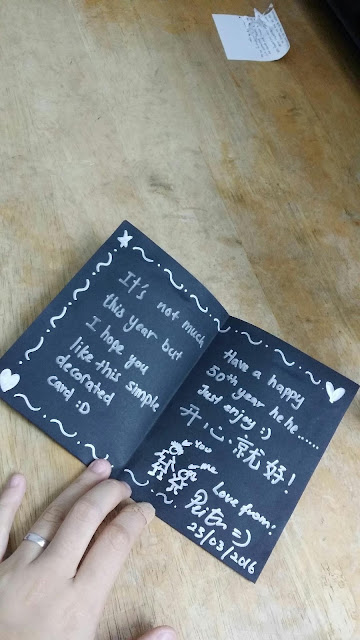 It's not much
this year but
I hope you
like this simple
decorated
card :D
Have a happy
50th year hehe.....
Just enjoy :)
开心就好!
You
me
Love from:
=)
23/03/2016